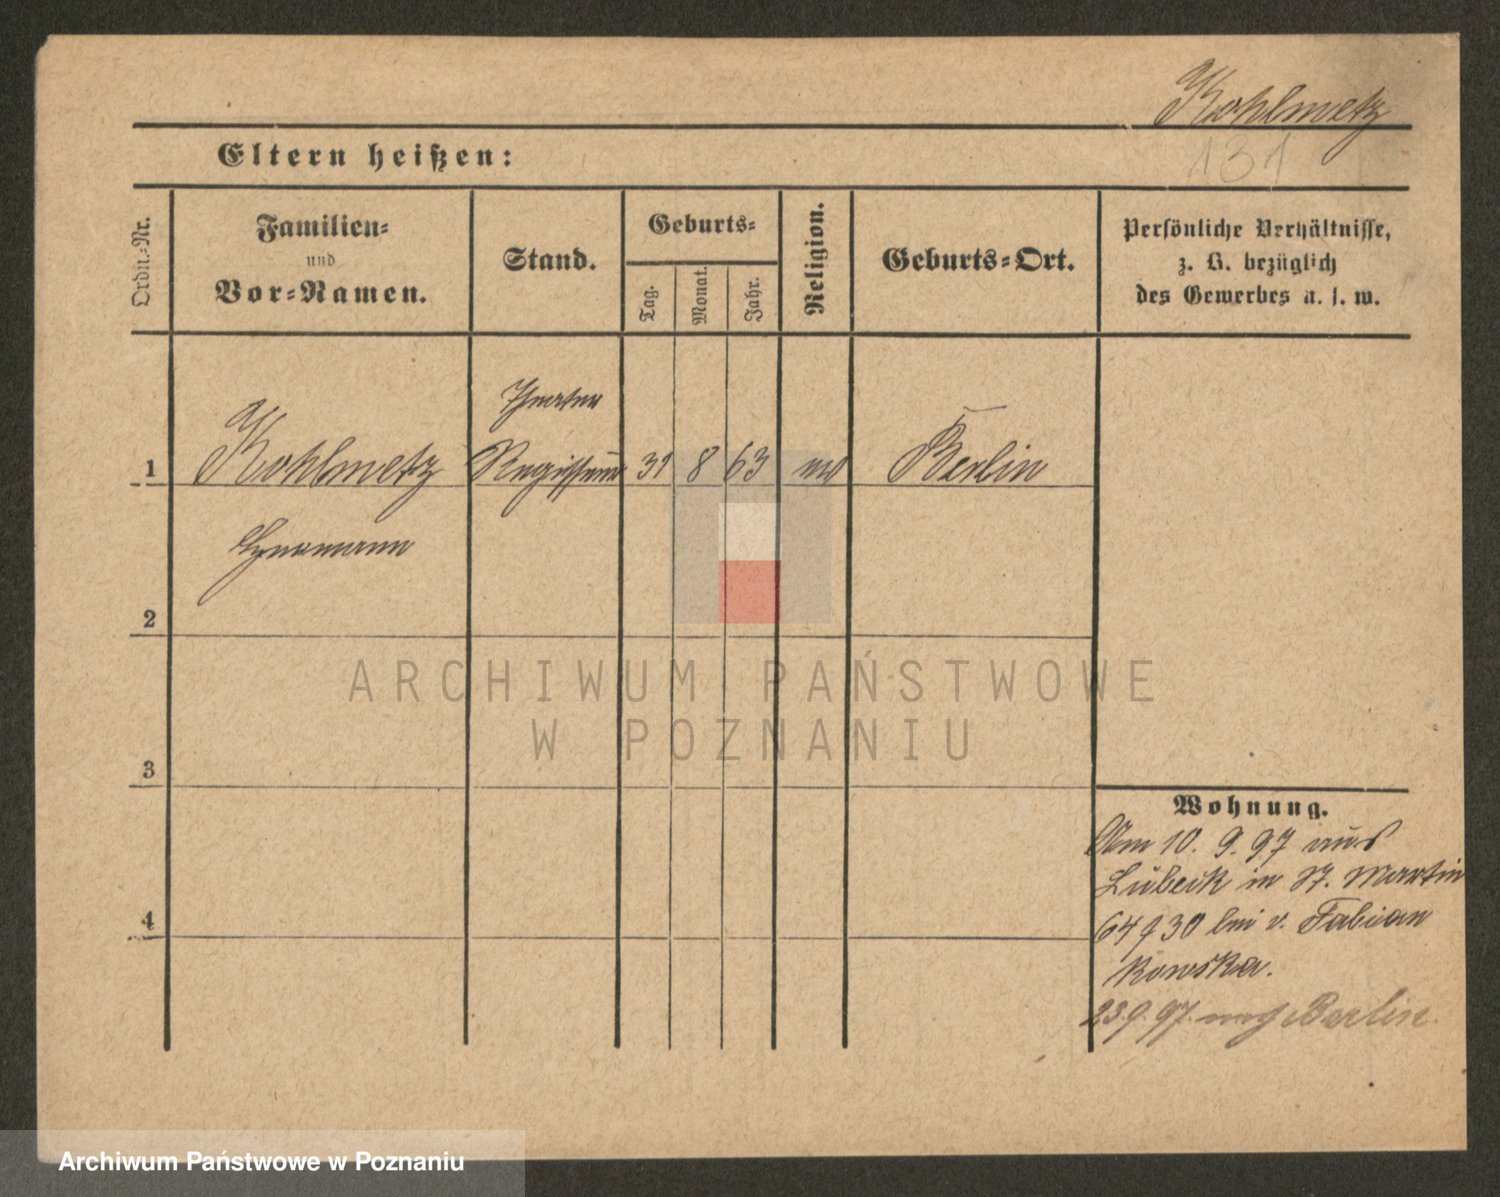 Kohlmetz
131
Eltern heißen:
Ordn.-Nr.
Familien-
und
Vor-Namen.
Stand.
Geburts-
Tag.
Monat.
Jahr.
Religion.
Geburts-Ort.
Persönliche Verhältnisse,
z. B. bezüglich
des Gewerbes u. s. w.
Theater
1 Kohlmetz Regisseur 31 8 63 ev Berlin
Hermann
2
ARCHIWUM PAŃSTWOWE
W POZNANIU
3
Wohnung.
Am 10. 9. 97 aus
Lübeck in St. Martin
64 30 bei v. Fabian
kowska.
4
23.9.97. nach Berlin.
Archiwum Państwowe w Poznaniu